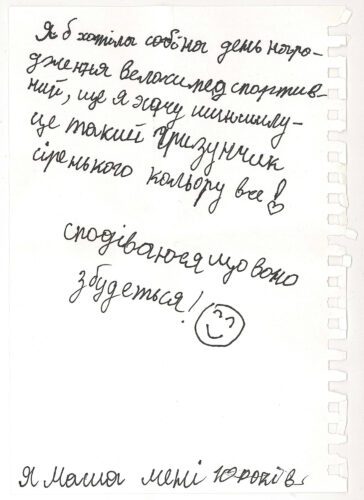 Я б хотіла собі на день наро-
дження велосипед спортив-
ний, ще я хочу шиншилу-
це такий гризунчик
сіренького кольору все!
сподіваюся що воно
збудеться!
Я Маша мені 10 років